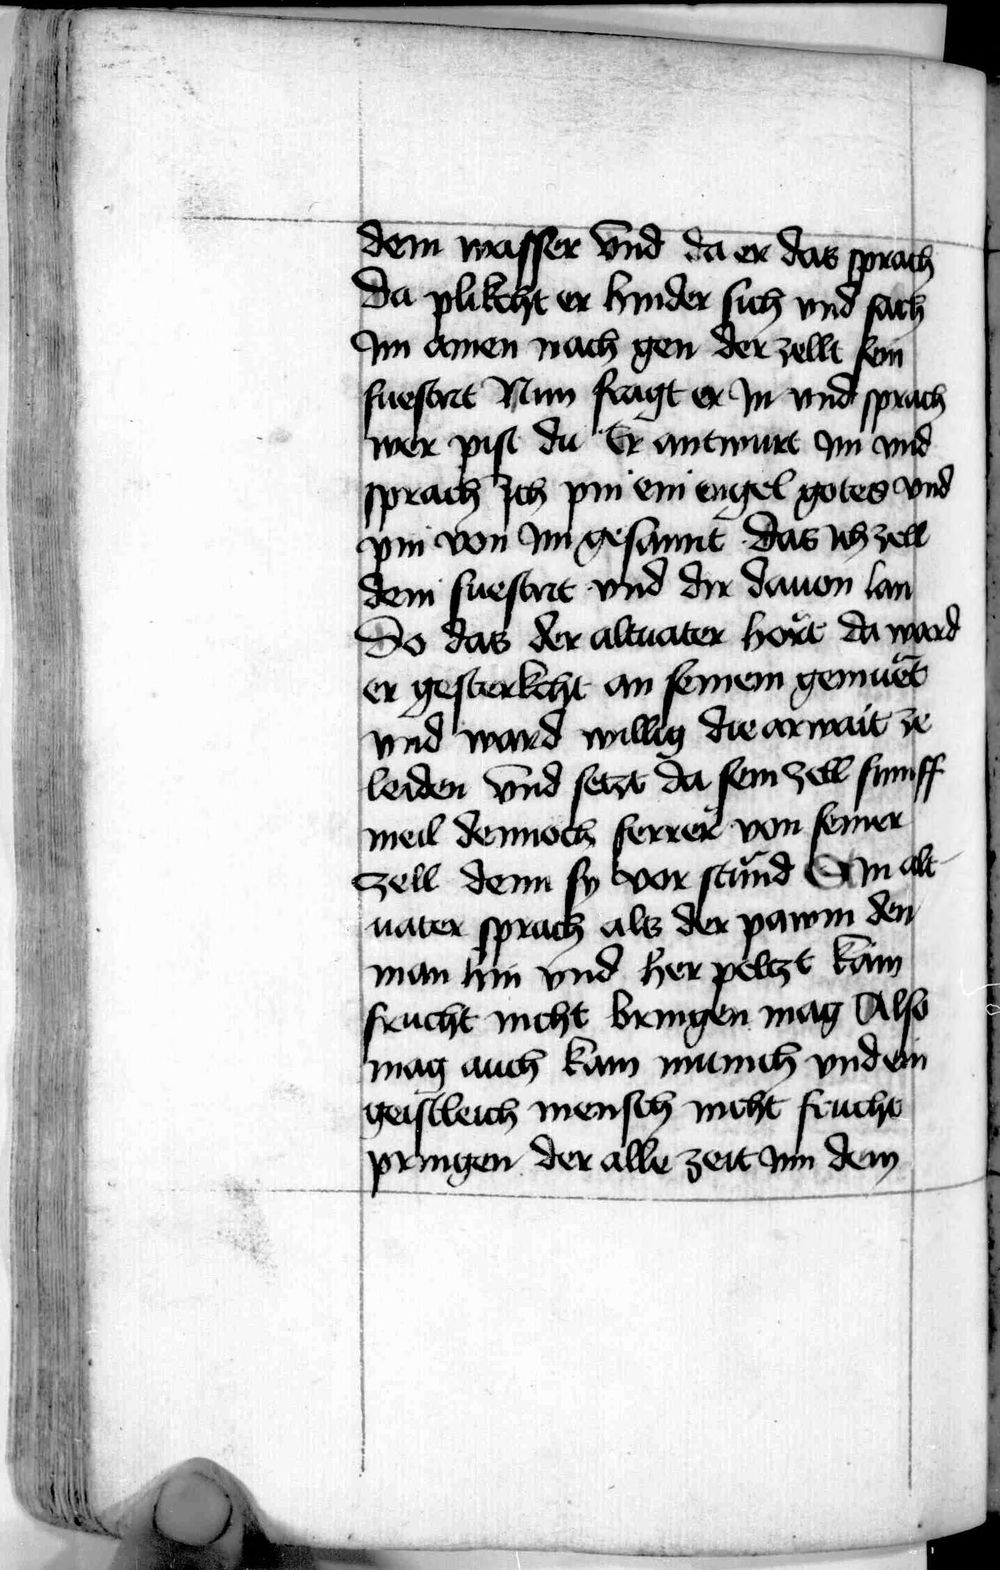 dem wasser vnd da er das sprach
Da plikcht er hinder sich vnd sach
Im ainen nach gen der zellt sein
fuestrit Nun fragt er In vnd sprach
wer pist du Er antwurt Im vnd
sprach Ich pin ein engel gotes vnd
pin von Im gesannt das ich zell
dein fuestrit vnd dir dauon lan
Do das der altuater hort da ward
er gesterkcht an seinem gemuet
vnd ward willig die arwait ze
leiden vnd setzt da sein zell fumff
meil dennoch ferrer von seiner
zell denn sy vor stund Ein alt
uater sprach als der pawm den
man hin vnd her peltzt kain
frucht nicht bringen mag Also
mag auch kain munich vnd ein
geistleich mensch nicht frucht
pringen der alle zeit von dem